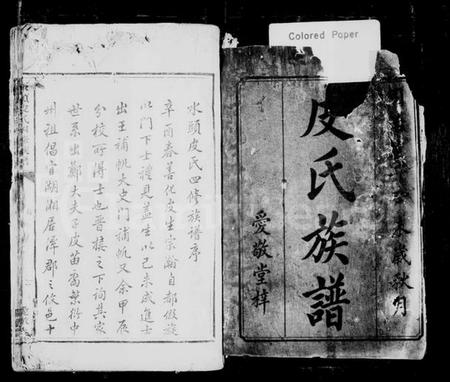 Colored Paper
皮氏族譜
歲秋月
愛敬堂梓
水頭皮氏四修族譜序
辛酉春善化皮生宗瀚自都假旋
以門下士禮見盖生以己未成進士
出王補帆太史門補帆又余甲辰
分校所得士也晉接之下詢其家
世系出鄭大夫子皮苗裔蔡衍中
州祖倡官湖湘居潭郡之攸邑十